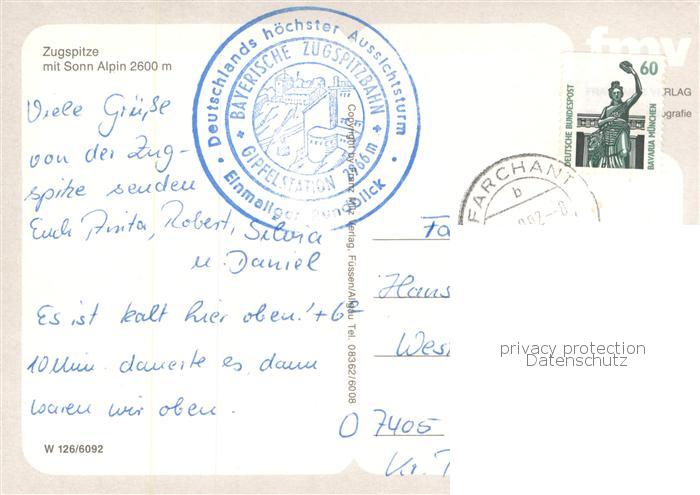 Zugspitze
mit Sonn Alpin 2600 m
Viele Grüße
von der Zug-
spitze senden
Euch Anita, Robert, Silvia
u. Daniel
Es ist kalt hier oben! +6°
10 Min. dauerte es, dann
waren wir oben.
W 126/6092
Deutschlands höchster Aussichtsturm
Einmaliger Rundblick
BAYERISCHE ZUGSPITZBAHN
GIPFELSTATION 2966 m
Copyright by Franz Verlag, Füssen/Allgäu Tel. 08362/6008
fmv
VERLAG
ografie
DEUTSCHE BUNDESPOST
60
BAYARIA MÜNCHEN
FARCHANT
b
Fa
Hans
West
D 7405
Kr. T
privacy protection
Datenschutz